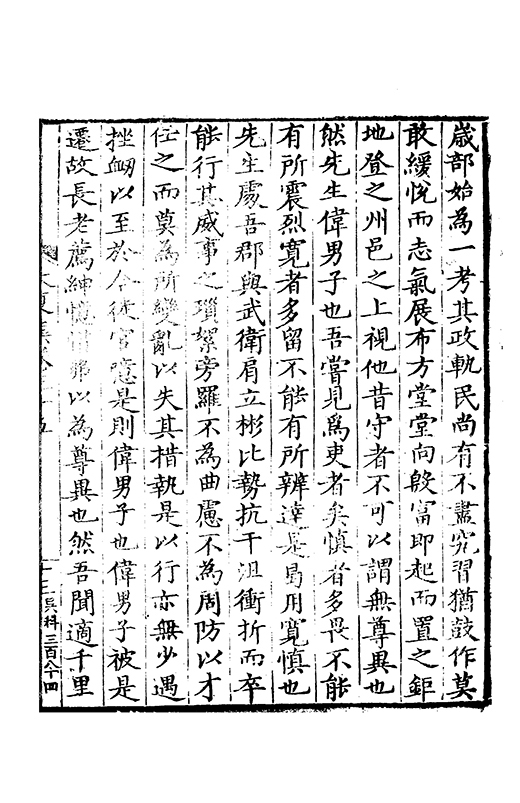 歲部始為一考其政軌民尚有不盡究習猶鼓作莫
敢緩悅而志氣展布方堂堂向殷富即起而置之鉅
地登之州邑之上視他昔守者不可以謂無尊異也
然先生偉男子也吾嘗見為吏者矣慎者多畏不能
有所震烈寬者多留不能有所辨達是曷用寬慎也
先生處吾郡與武衛肩立彬比勢抗干沮衝折而卒
能行其威事之瑣絮旁羅不為曲慮不為周防以才
任之而莫為所變亂以失其措執是以行亦無少遇
挫衂以至於今徒官噫是則偉男子也偉男子被是
遷故長老薦紳憶惜弗以為尊異也然吾聞適千里
十三吳科三百八十四